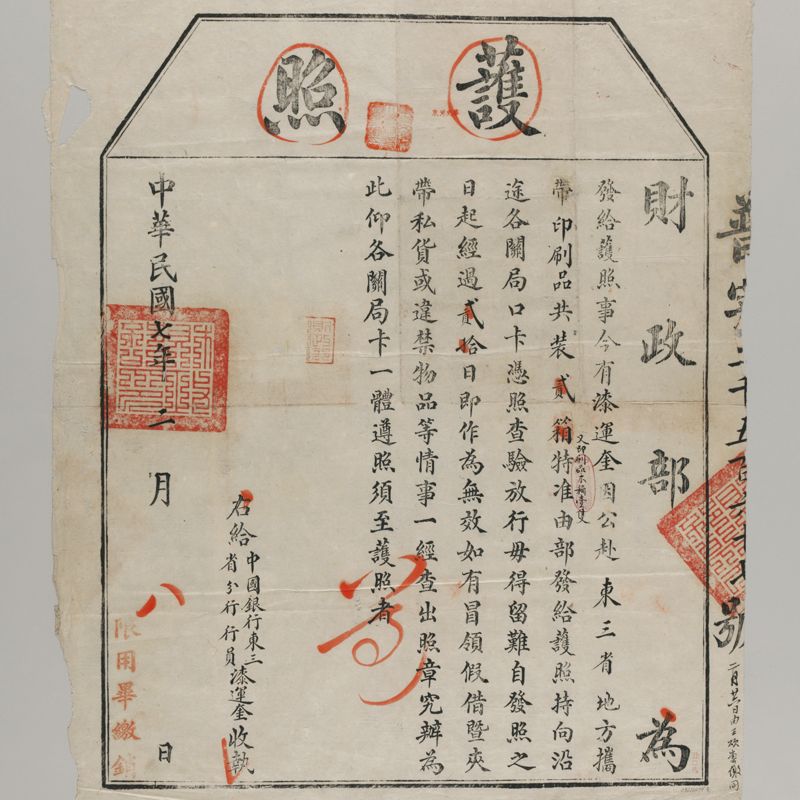 護照
財政部為
發給護照事今有漆運金因公赴東三省地方攜
帶印刷品共裝貳箱特准由部發給護照持向沿
又印刷品木箱壹隻
途各關局口卡憑照查驗放行毋得留難自發照之
日起經過貳拾日即作為無效如有冒領假借暨夾
帶私貨或違禁物品等情事一經查出照章究辦為
此仰各關局卡一體遵照須至護照者
右給中國銀行東三省分行行員漆運金收執
中華民國七年二月八日
限用畢繳銷